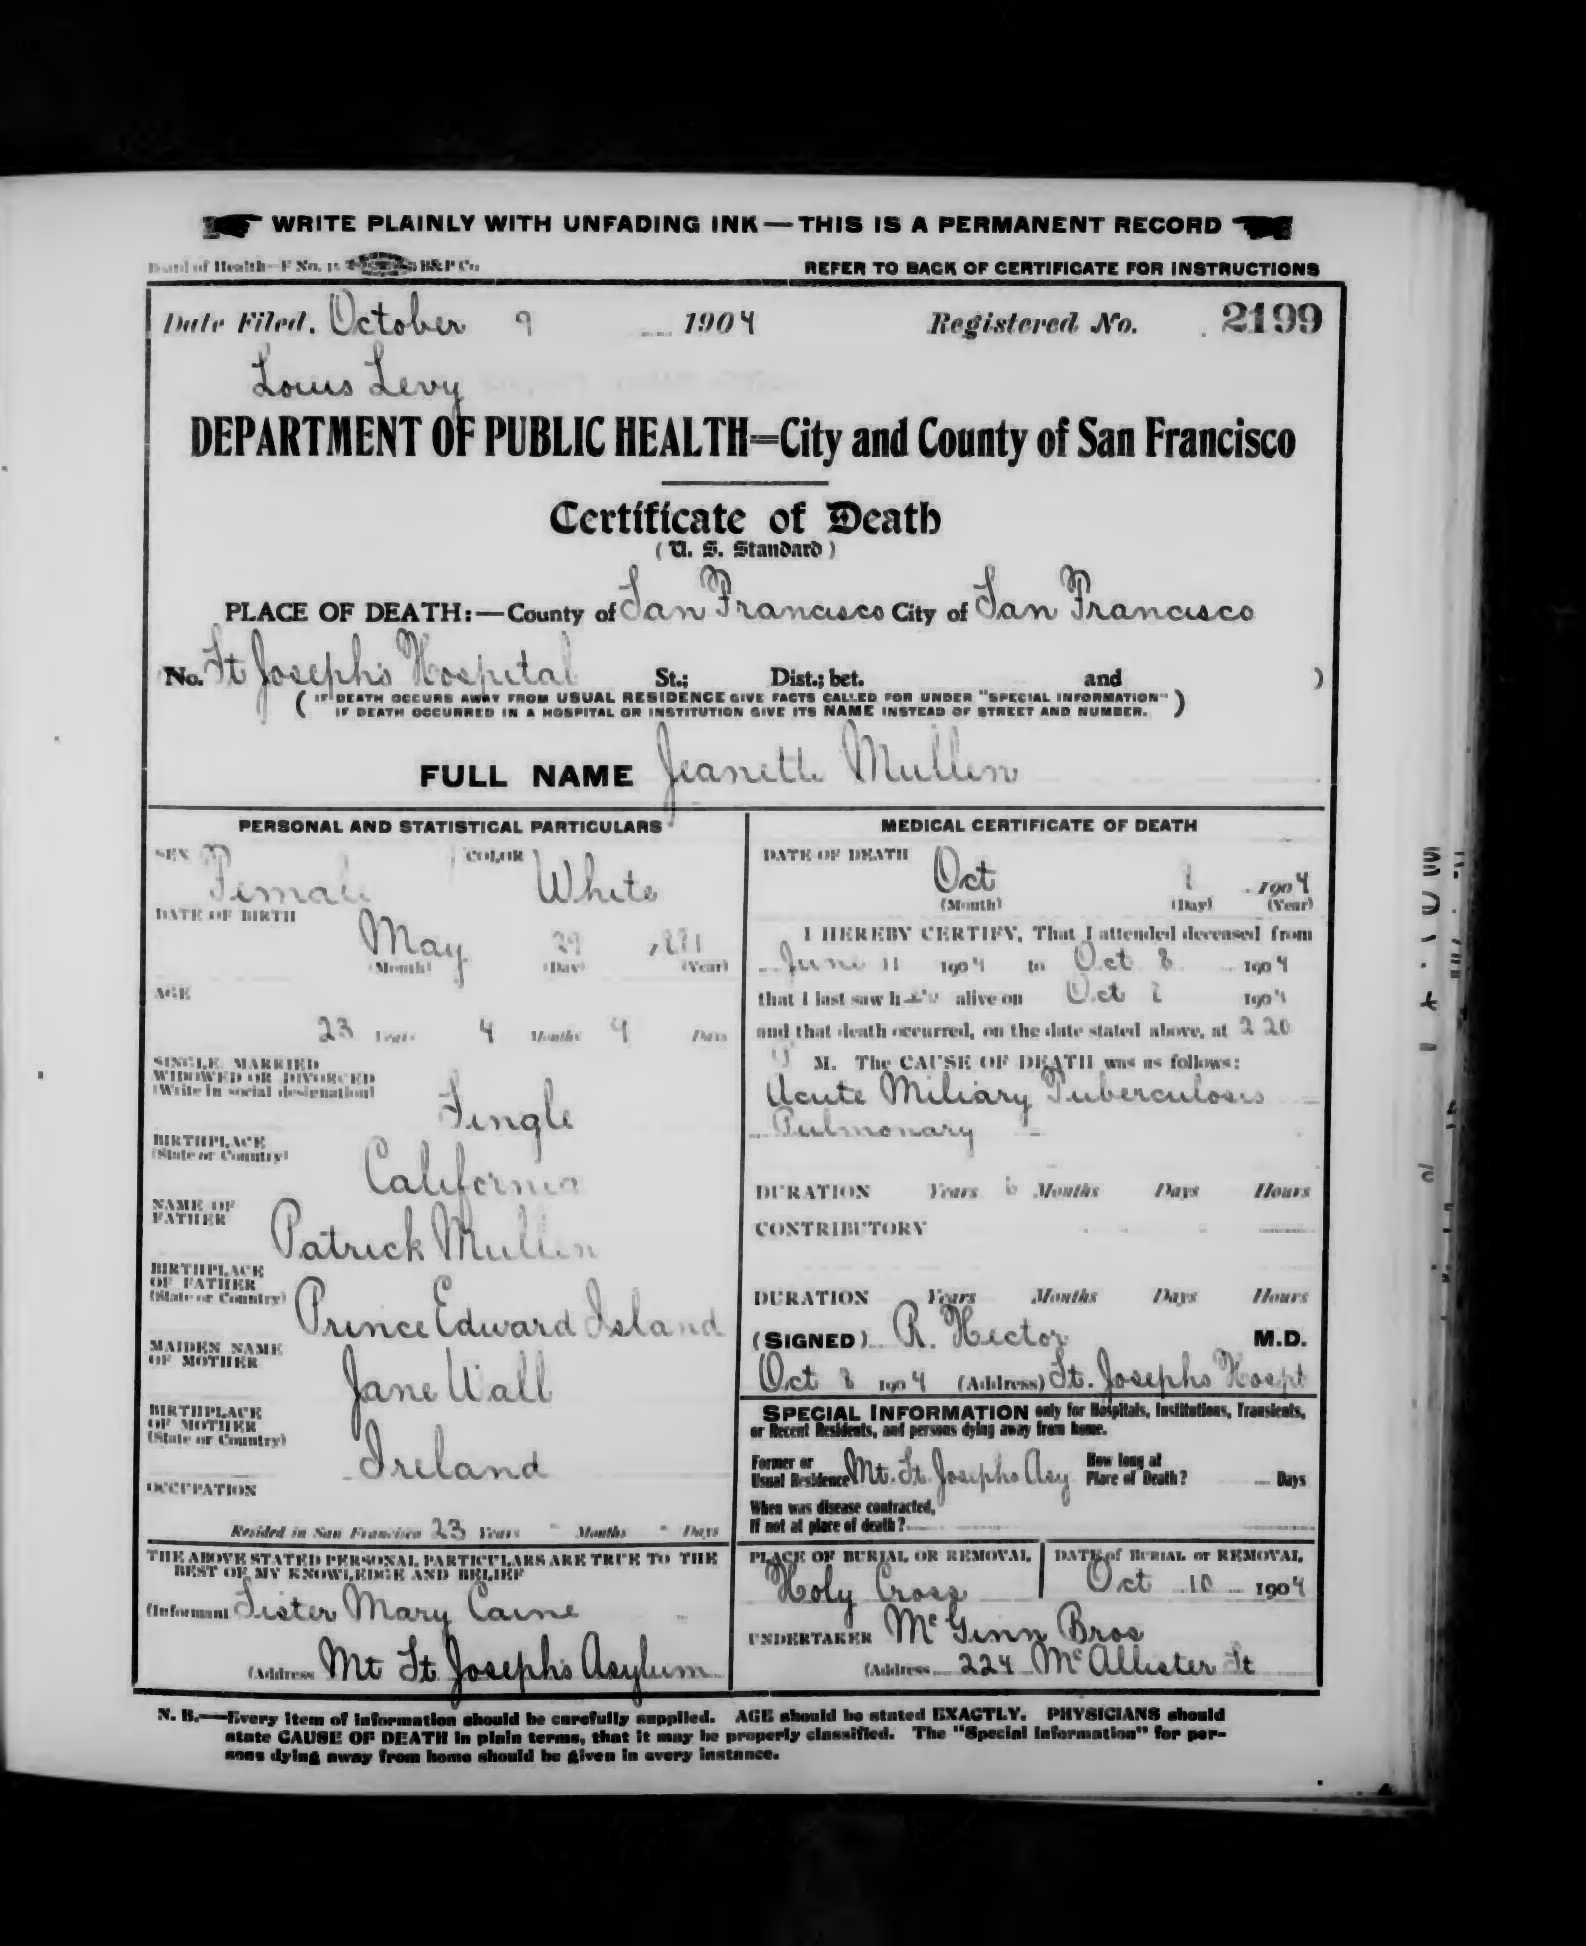 WRITE PLAINLY WITH UNFADING INK—THIS IS A PERMANENT RECORD
Board of Health—F No. 15 B&P Co.
REFER TO BACK OF CERTIFICATE FOR INSTRUCTIONS
Date Filed. October 9 1904 Registered No. 2199
Louis Levy
DEPARTMENT OF PUBLIC HEALTH=City and County of San Francisco
Certificate of Death
(U. S. Standard)
PLACE OF DEATH:—County of San Francisco City of San Francisco
No. St Joseph's Hospital St.; Dist.; bet. and )
( IF DEATH OCCURS AWAY FROM USUAL RESIDENCE GIVE FACTS CALLED FOR UNDER "SPECIAL INFORMATION" )
IF DEATH OCCURRED IN A HOSPITAL OR INSTITUTION GIVE ITS NAME INSTEAD OF STREET AND NUMBER.
FULL NAME Jeanette Mullen
PERSONAL AND STATISTICAL PARTICULARS
SEX Female COLOR White
DATE OF BIRTH May 29 1881
(Month) (Day) (Year)
AGE
23 Years 4 Months 9 Days
SINGLE, MARRIED
WIDOWED OR DIVORCED
(Write in social designation)
Single
BIRTHPLACE
(State or Country)
California
NAME OF
FATHER
Patrick Mullen
BIRTHPLACE
OF FATHER
(State or Country)
Prince Edward Island
MAIDEN NAME
OF MOTHER
Jane Wall
BIRTHPLACE
OF MOTHER
(State or Country)
Ireland
OCCUPATION
Resided in San Francisco 23 Years - Months - Days
THE ABOVE STATED PERSONAL PARTICULARS ARE TRUE TO THE
BEST OF MY KNOWLEDGE AND BELIEF
(Informant Sister Mary Caine
(Address Mt St Joseph's Asylum
MEDICAL CERTIFICATE OF DEATH
DATE OF DEATH
Oct 8 1904
(Month) (Day) (Year)
I HEREBY CERTIFY, That I attended deceased from
June 11 1904 to Oct 8 1904
that I last saw her alive on Oct 8 1904
and that death occurred, on the date stated above, at 2 20
M. The CAUSE OF DEATH was as follows:
Acute Miliary Tuberculosis
Pulmonary
DURATION Years 6 Months Days Hours
CONTRIBUTORY
DURATION Years Months Days Hours
(SIGNED) R. Hector M.D.
Oct 8 1904 (Address) St. Josephs Hospt
SPECIAL INFORMATION only for Hospitals, Institutions, Transients,
or Recent Residents, and persons dying away from home.
Former or
Usual Residence Mt. St. Josephs Asy
How long at
Place of Death? Days
When was disease contracted,
If not at place of death?
PLACE OF BURIAL OR REMOVAL
Holy Cross
DATE of BURIAL or REMOVAL
Oct 10 1904
UNDERTAKER McGinn Bros
(Address 224 McAllister St
N. B.—Every item of information should be carefully supplied. AGE should be stated EXACTLY. PHYSICIANS should
state CAUSE OF DEATH in plain terms, that it may be properly classified. The "Special Information" for per-
sons dying away from home should be given in every instance.